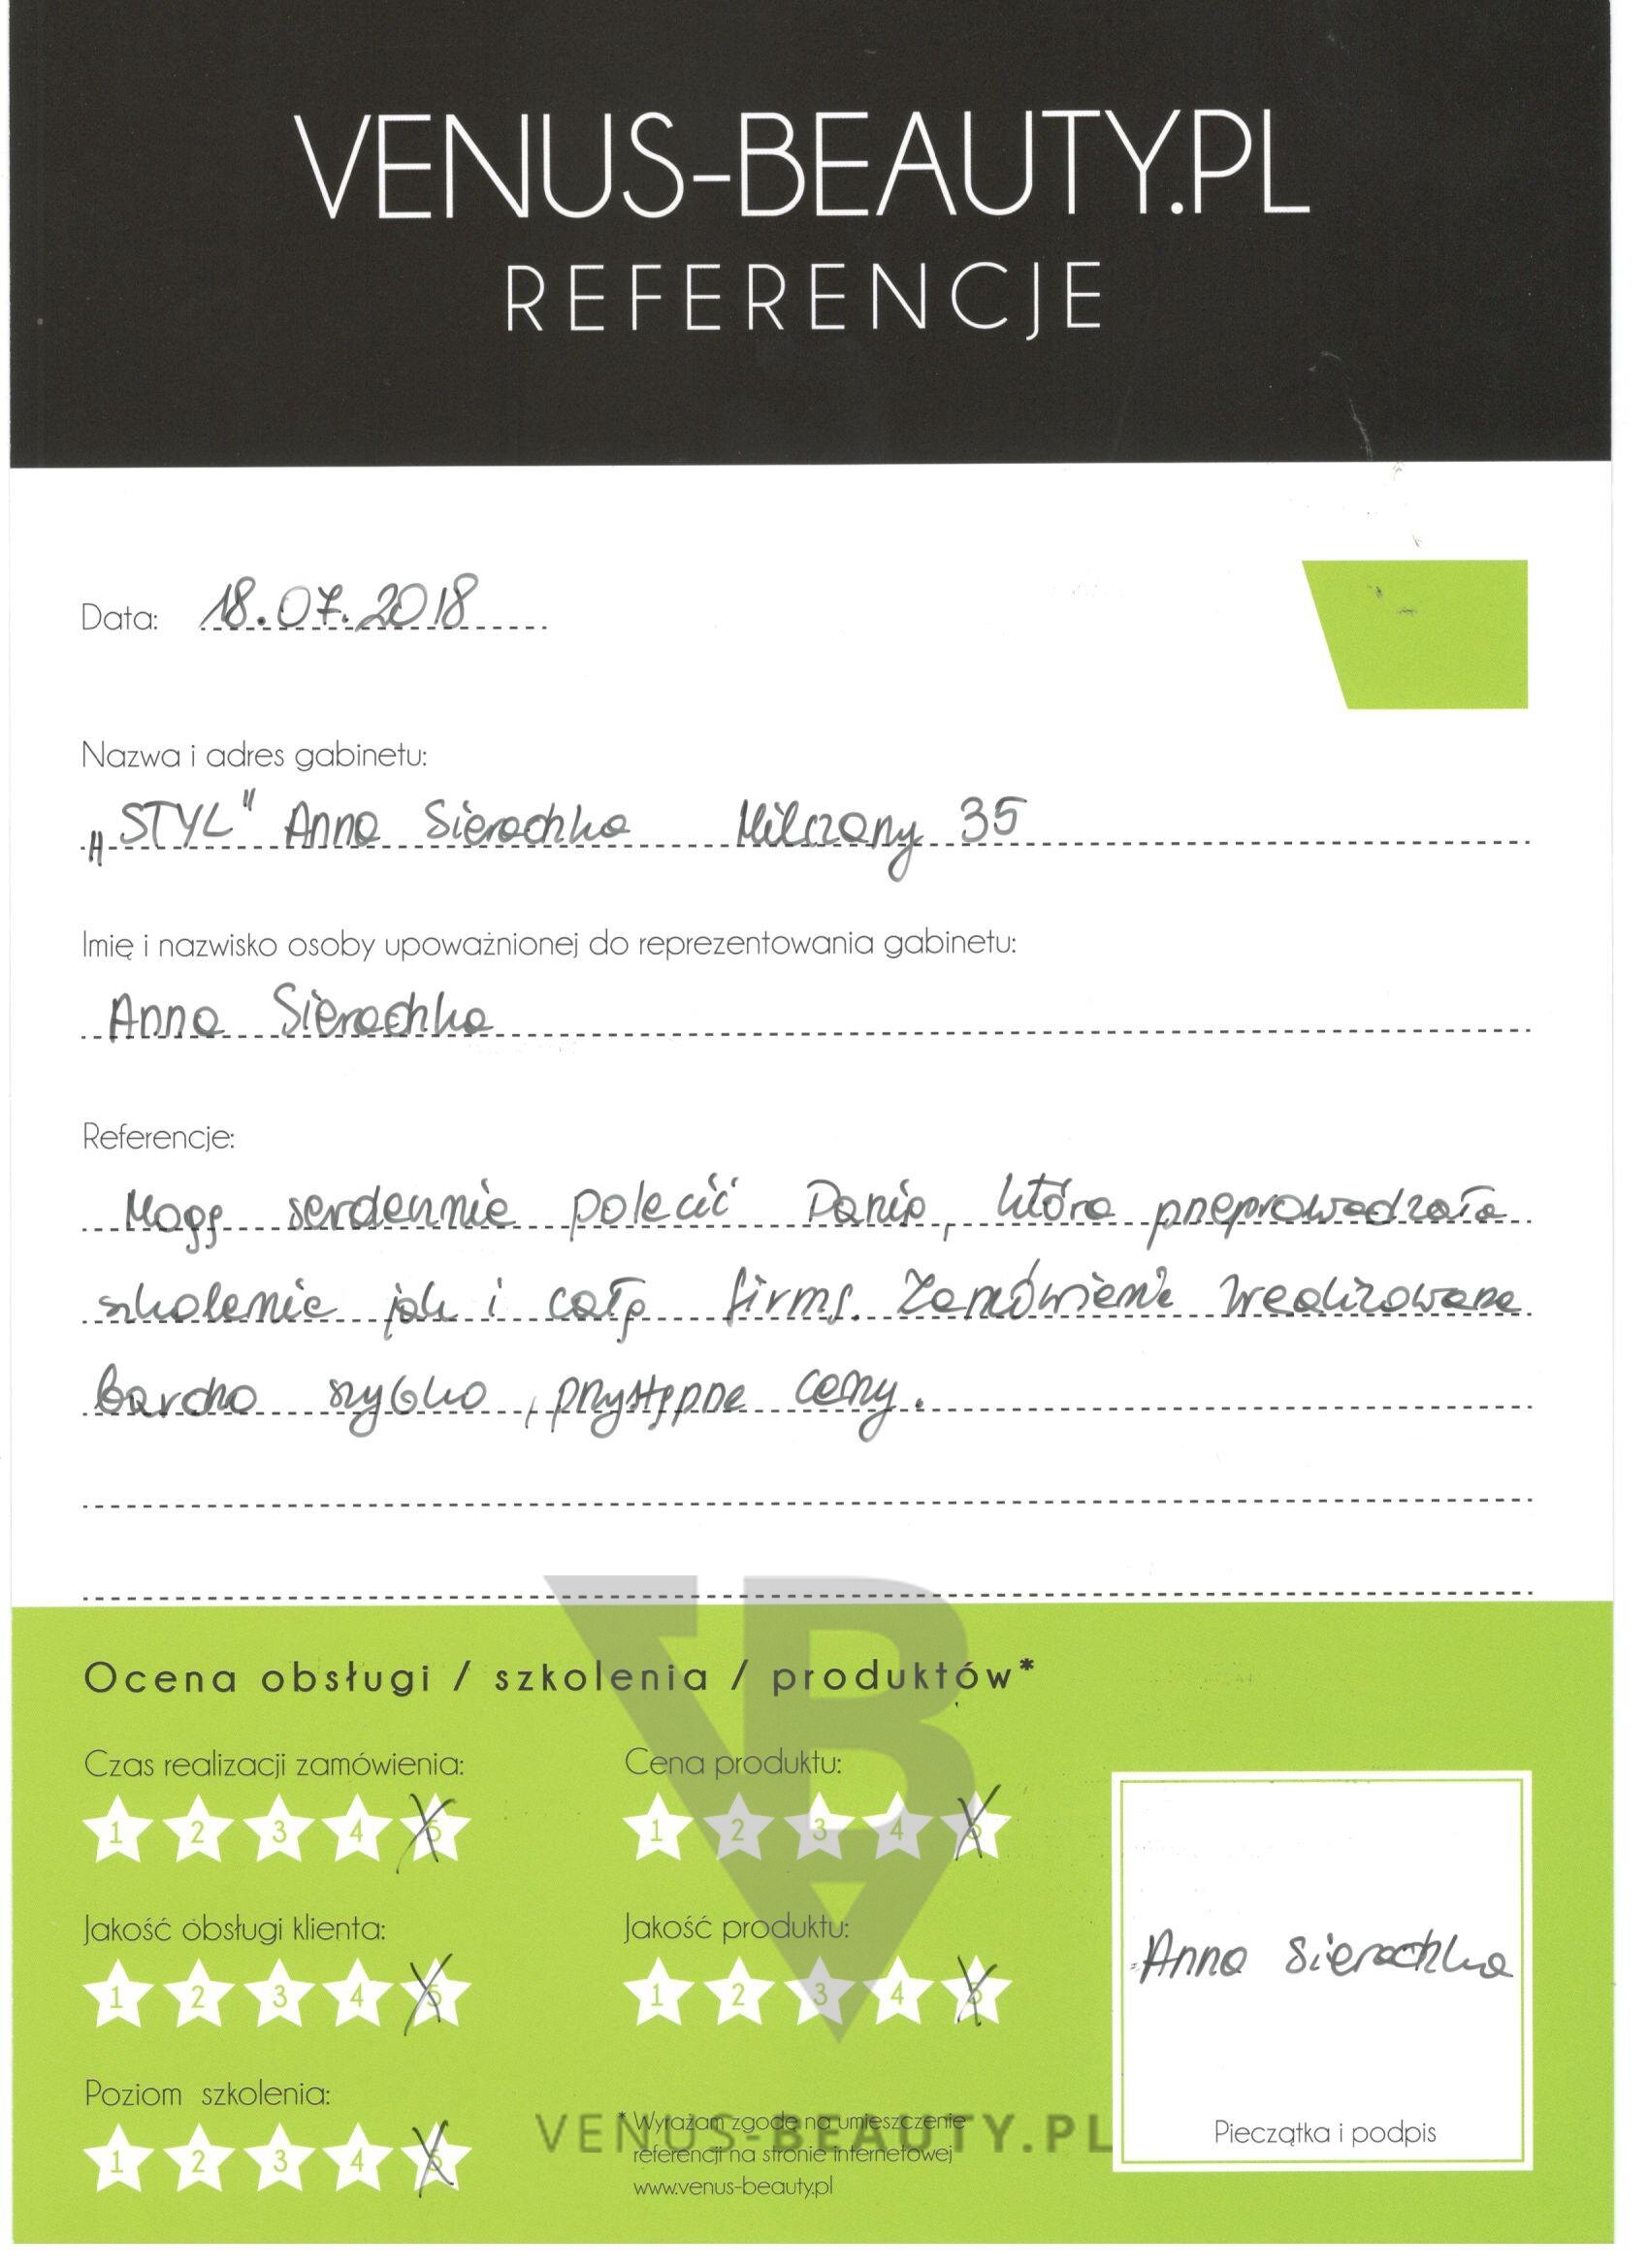 VENUS-BEAUTY.PL
REFERENCJE
Data: 18.07.2018
Nazwa i adres gabinetu:
„STYL" Anna Sieradzka Milczany 35
Imię i nazwisko osoby upoważnionej do reprezentowania gabinetu:
Anna Sieradzka
Referencje:
Mogę serdecznie polecić Panią, która przeprowadzała
szkolenie jak i całą firmę. Zamówienie zrealizowane
bardzo szybko, przystępne ceny.
Ocena obsługi / szkolenia / produktów*
Czas realizacji zamówienia:
1 2 3 4 5
Cena produktu:
1 2 3 4 5
Jakość obsługi klienta:
1 2 3 4 5
Jakość produktu:
1 2 3 4 5
Poziom szkolenia:
1 2 3 4 5
* Wyrażam zgodę na umieszczenie
referencji na stronie internetowej
www.venus-beauty.pl
Anna Sieradzka
Pieczątka i podpis
VBA
VENUS-BEAUTY.PL